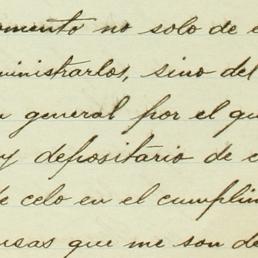 omento no solo de e
ministrarlos, sino del
n general por el qu
y depositario de e
de celo en el cumplim
nsas que me son de